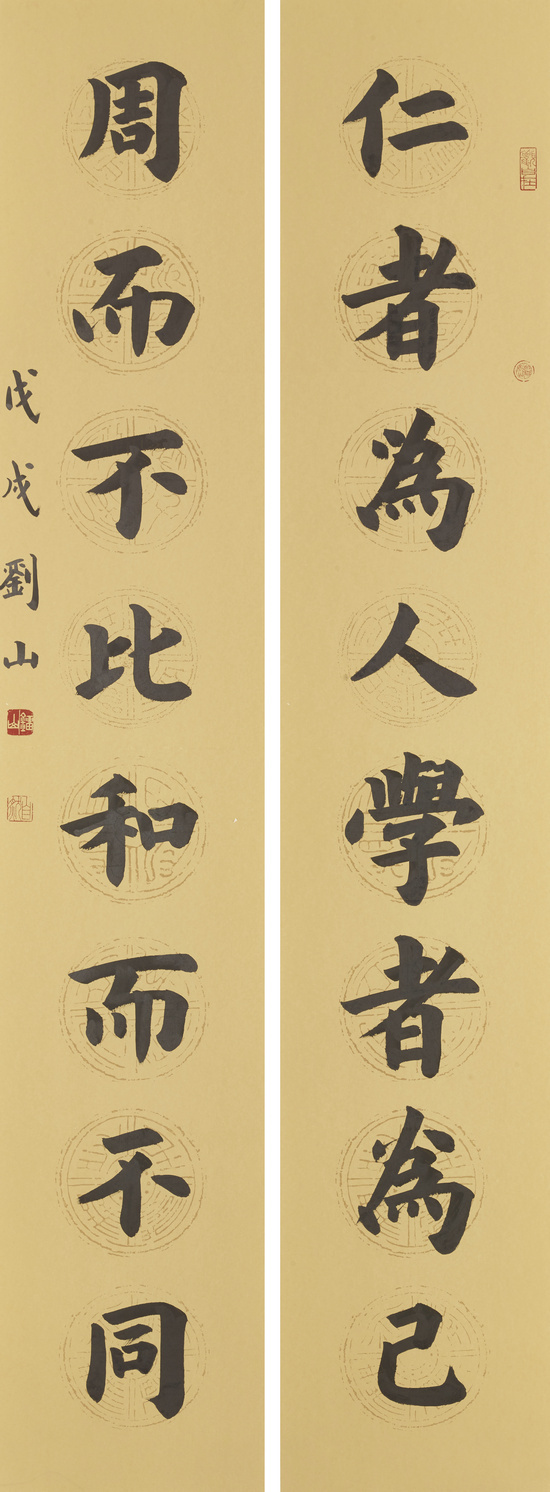 仁者為人學者為己
周而不比和而不同
戊戌劉山